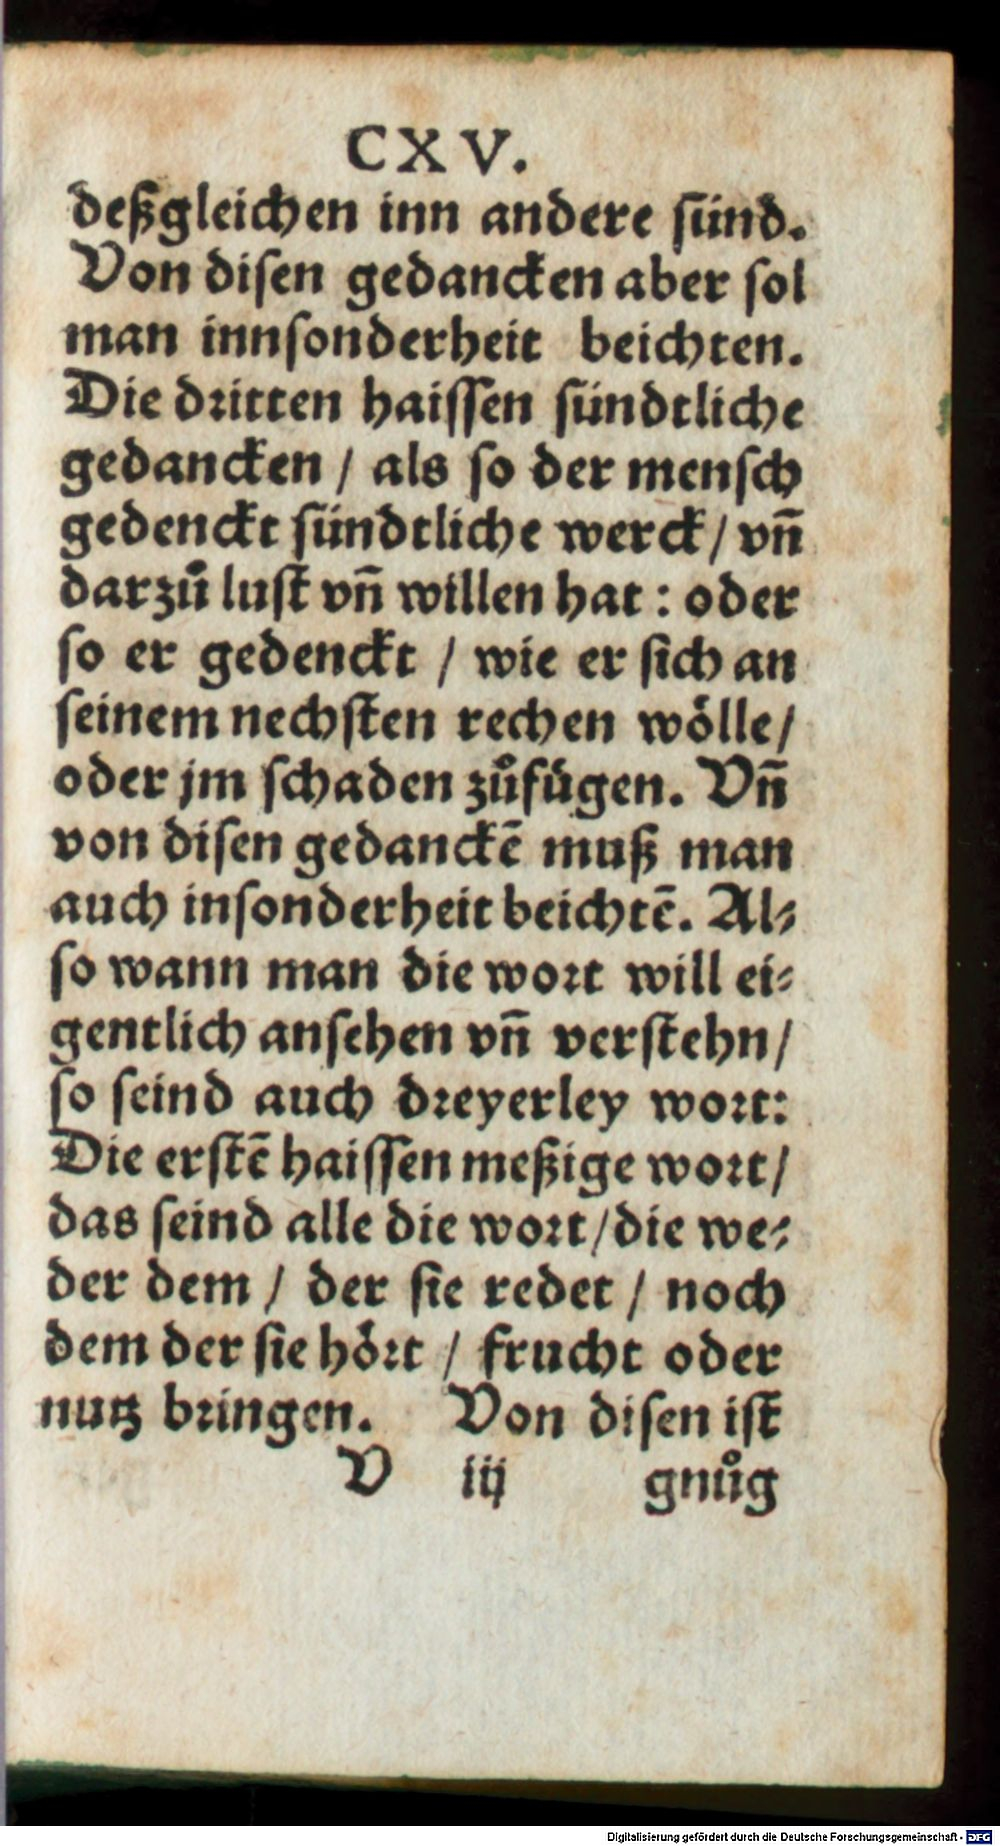 CXV.
deßgleichen inn andere sünd.
Von disen gedancken aber sol
man innsonderheit beichten.
Die dritten haissen sündtliche
gedancken / als so der mensch
gedenckt sündtliche werck / vn̄
darzů lust vn̄ willen hat : oder
so er gedenckt / wie er sich an
seinem nechsten rechen wölle /
oder jm schaden zůfügen. Vn̄
von disen gedanckē muß man
auch insonderheit beichtē. Al⸗
so wann man die wort will ei⸗
gentlich ansehen vn̄ verstehn /
so seind auch dreyerley wort:
Die erstē haissen meßige wort /
das seind alle die wort / die we⸗
der dem / der sie redet / noch
dem der sie hört / frucht oder
nutz bringen. Von disen ist
V iij gnůg
Digitalisierung gefördert durch die Deutsche Forschungsgemeinschaft - DFG